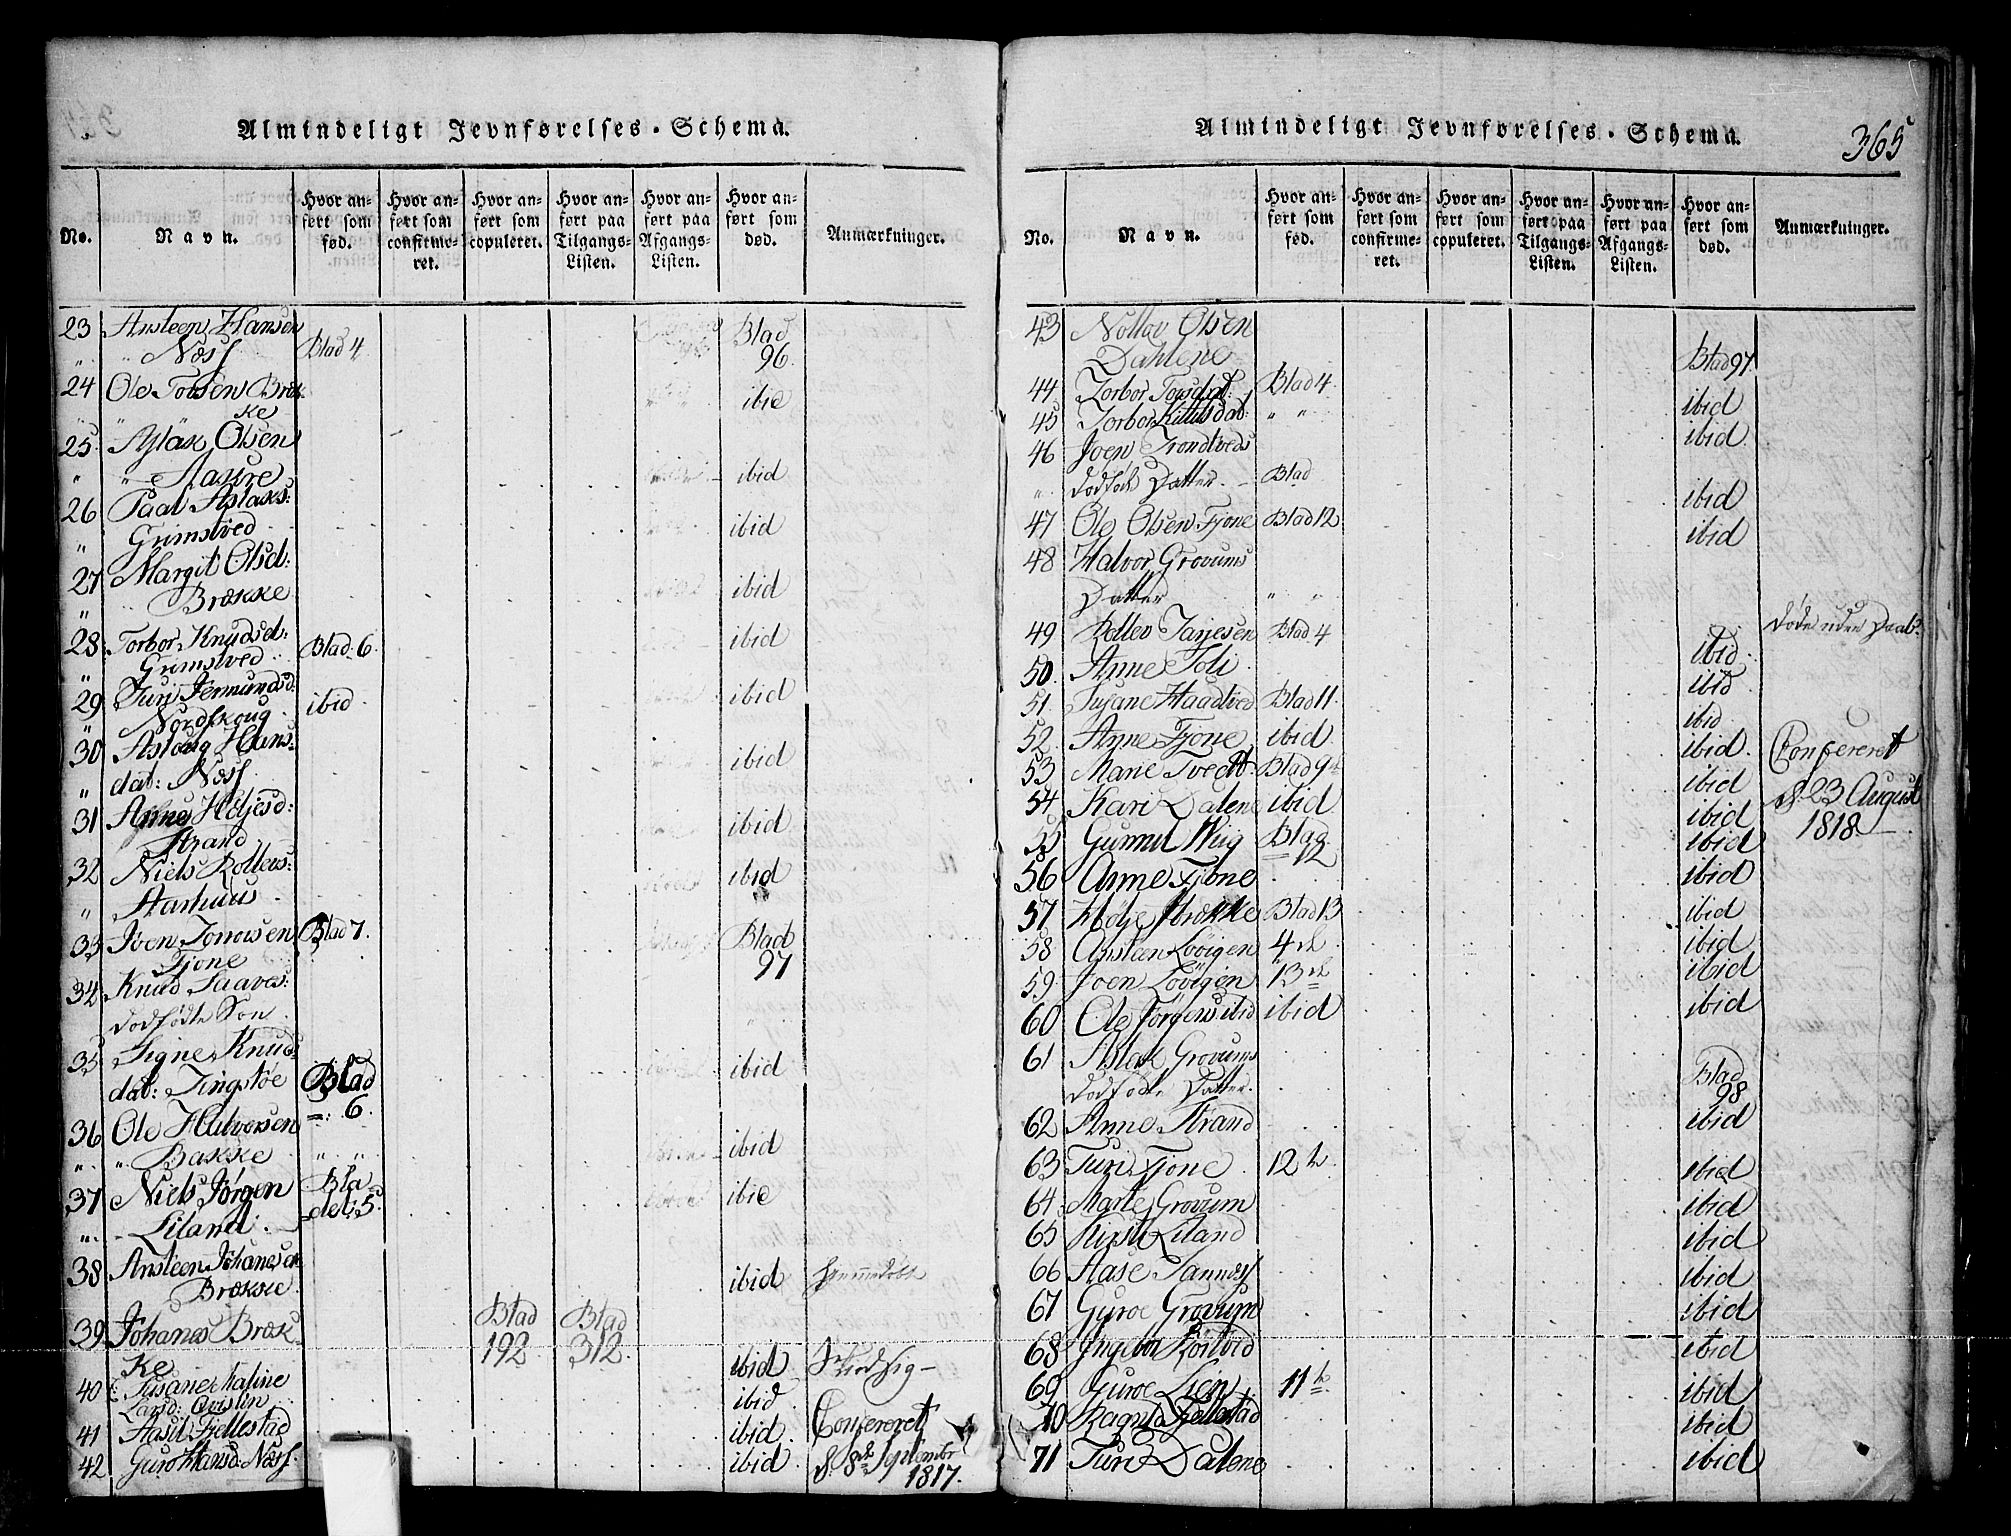 Almindeligt Jevnførelses-Schema.
No.
Navn.
Hvor anført som fød.
Hvor anført som confirmeret.
Hvor anført som copuleret.
Hvor anført paa Tilgangs-Listen.
Hvor anført paa Afgangs-Listen.
Hvor anført som død.
Anmærkninger.
23 Ansteen Hansen Blad
" " Næss Blad 4 96
24 Ole Torsen Bræk- ibid
" ke
25 Aslak Olsen
" " Aasire ibid
26 Paal Aslaks: ibid
" Grimstved
27 Margit Olsd: ibid
" " Brække
28 Torbor Knudsd: Blad 6 ibid
" Grimstved
29 Turj Jermundsd: ibid ibid
" Nordskoug
30 Aslaug Hans- ibid
" dat: Næss
31 Anne Høljesd: ibid
Strand
32 Niels Rollevs: ibid
" Aarhuus
33 Joen Torrowsen Blad 7 Blad
Fjone 97
34 Knud Saaves:
dødfødte Søn "
35 Signe Knuds
dat: Tingstøe Blad ibid
6
36 Ole Halvorsen ibid
" " Bakke " "
37 Niels Jørgen Bla- ibid
" Liland det 5
38 Ansteen Johanesen ibid Hjemmedøbt
Brække
39 Johanes Bræk- Blad 192 Blad 312
ke ibid
40 Susane Maline ibid
Larsd:
41 Aasil Fjellestad ibid Confereret
42 Guro Hansd: Næss ibid d. 8de September
1817.
Almindeligt Jevnførelses-Schema.
365
No.
Navn.
Hvor anført som fød.
Hvor anført som confirmeret.
Hvor anført som copuleret.
Hvor anført paa Tilgangs-Listen.
Hvor anført paa Afgangs-Listen.
Hvor anført som død.
Anmærkninger.
43 Nollov Olsen
Dahlene Blad 97
44 Torbor Torsdat: Blad 4 ibid
45 Torbor Kittilsdat: " " ibid
46 Joen Trondtveds
" dødføde Datter Blad ibid
47 Ole Olsen Fjone Blad 12 ibid
48 Halvor Grovums
Datter " " døde uden Daab
49 Rollev Tarjesen Blad 4 ibid
50 Anne Foli ibid
51 Susane Haadtved Blad 11 ibid
52 Anne Fjone ibid ibid Confereret
53 Marie Tvedt Blad 9 ibid d. 23 August
54 Kari Dalene ibid ibid 1818
55 Gunnil Wiig Blad 12 ibid
56 Anne Fjone ibid
57 Hølje Brække Blad 13 ibid
58 Ansteen Løvigen 4de ibid
59 Joen Løvigen 13de ibid
60 Ole Jørgens ibid ibid ibid
61 Aslak Grovums
dødfødte Datter Blad 98
62 Anne Strand ibid
63 Turi Fjone 12te ibid
64 Marte Grovum ibid
65 Kirsti Liland ibid
66 Aase Tannæss ibid
67 Guroe Grovum ibid
68 Ingebor ibid
69 Guroe Lien 11te ibid
70 Ragnild Fjellestad ibid
71 Turi Dalene ibid